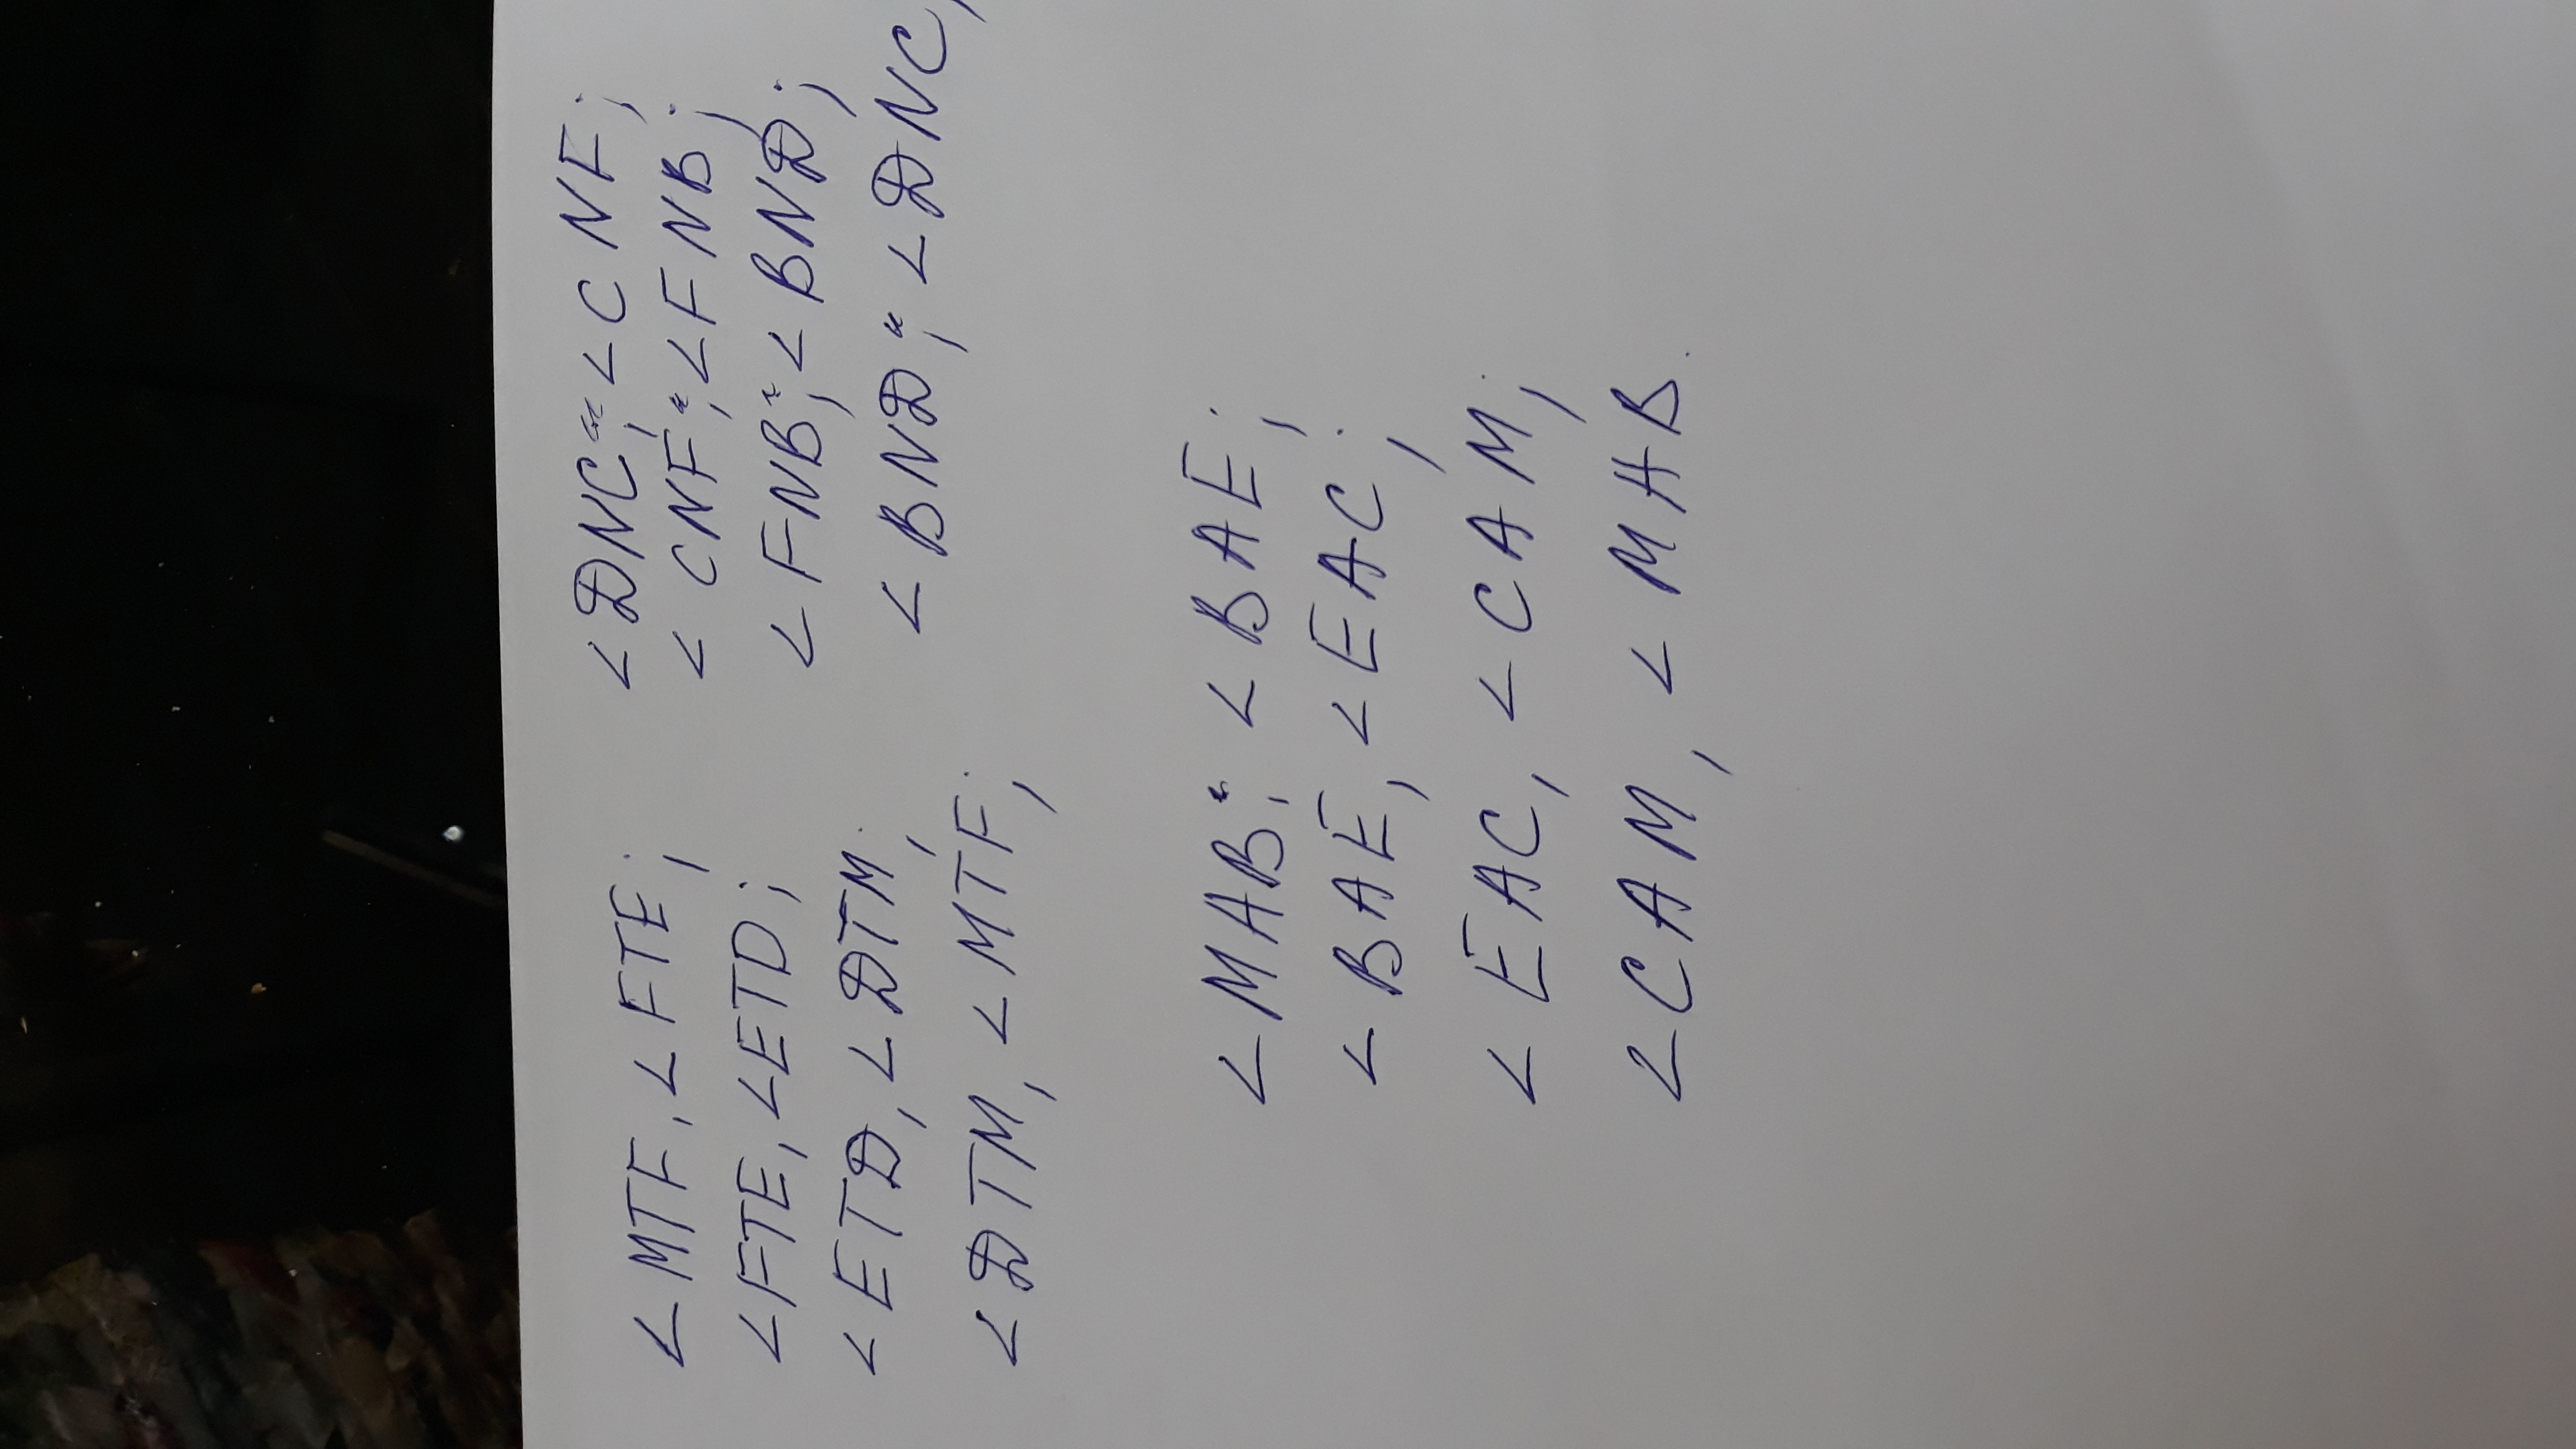 ∠MTF, ∠FTE;
∠FTE, ∠ETD;
∠ETD, ∠DTM;
∠DTM, ∠MTF;
∠DNC, и ∠CNF;
∠CNF, и ∠FNB;
∠FNB, и ∠BND;
∠BND, и ∠DNC,
∠MAB, и ∠BAE;
∠BAE, ∠EAC;
∠EAC, ∠CAM;
∠CAM, ∠MAB.